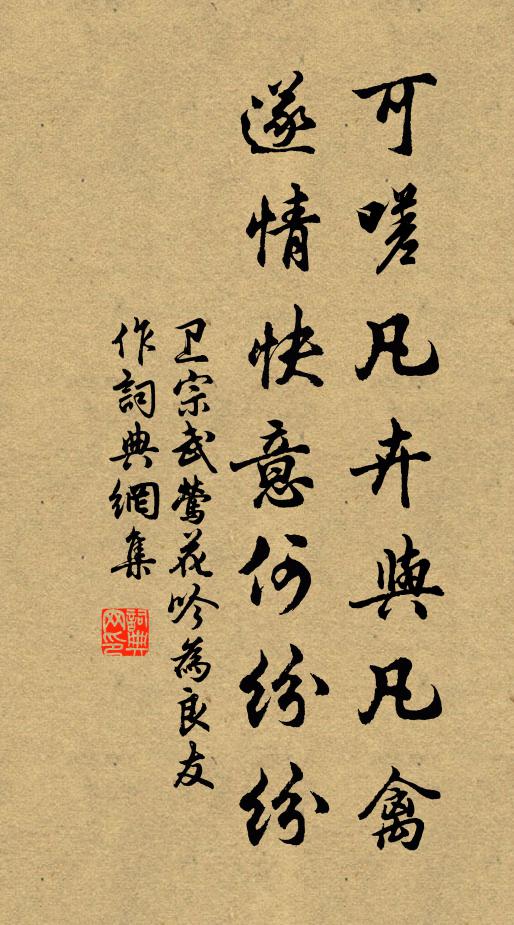 可嗟凡卉與凡禽
遂情快意何紛紛
卫宗武鶯花吟為良友
作詞典網集
詞典網印